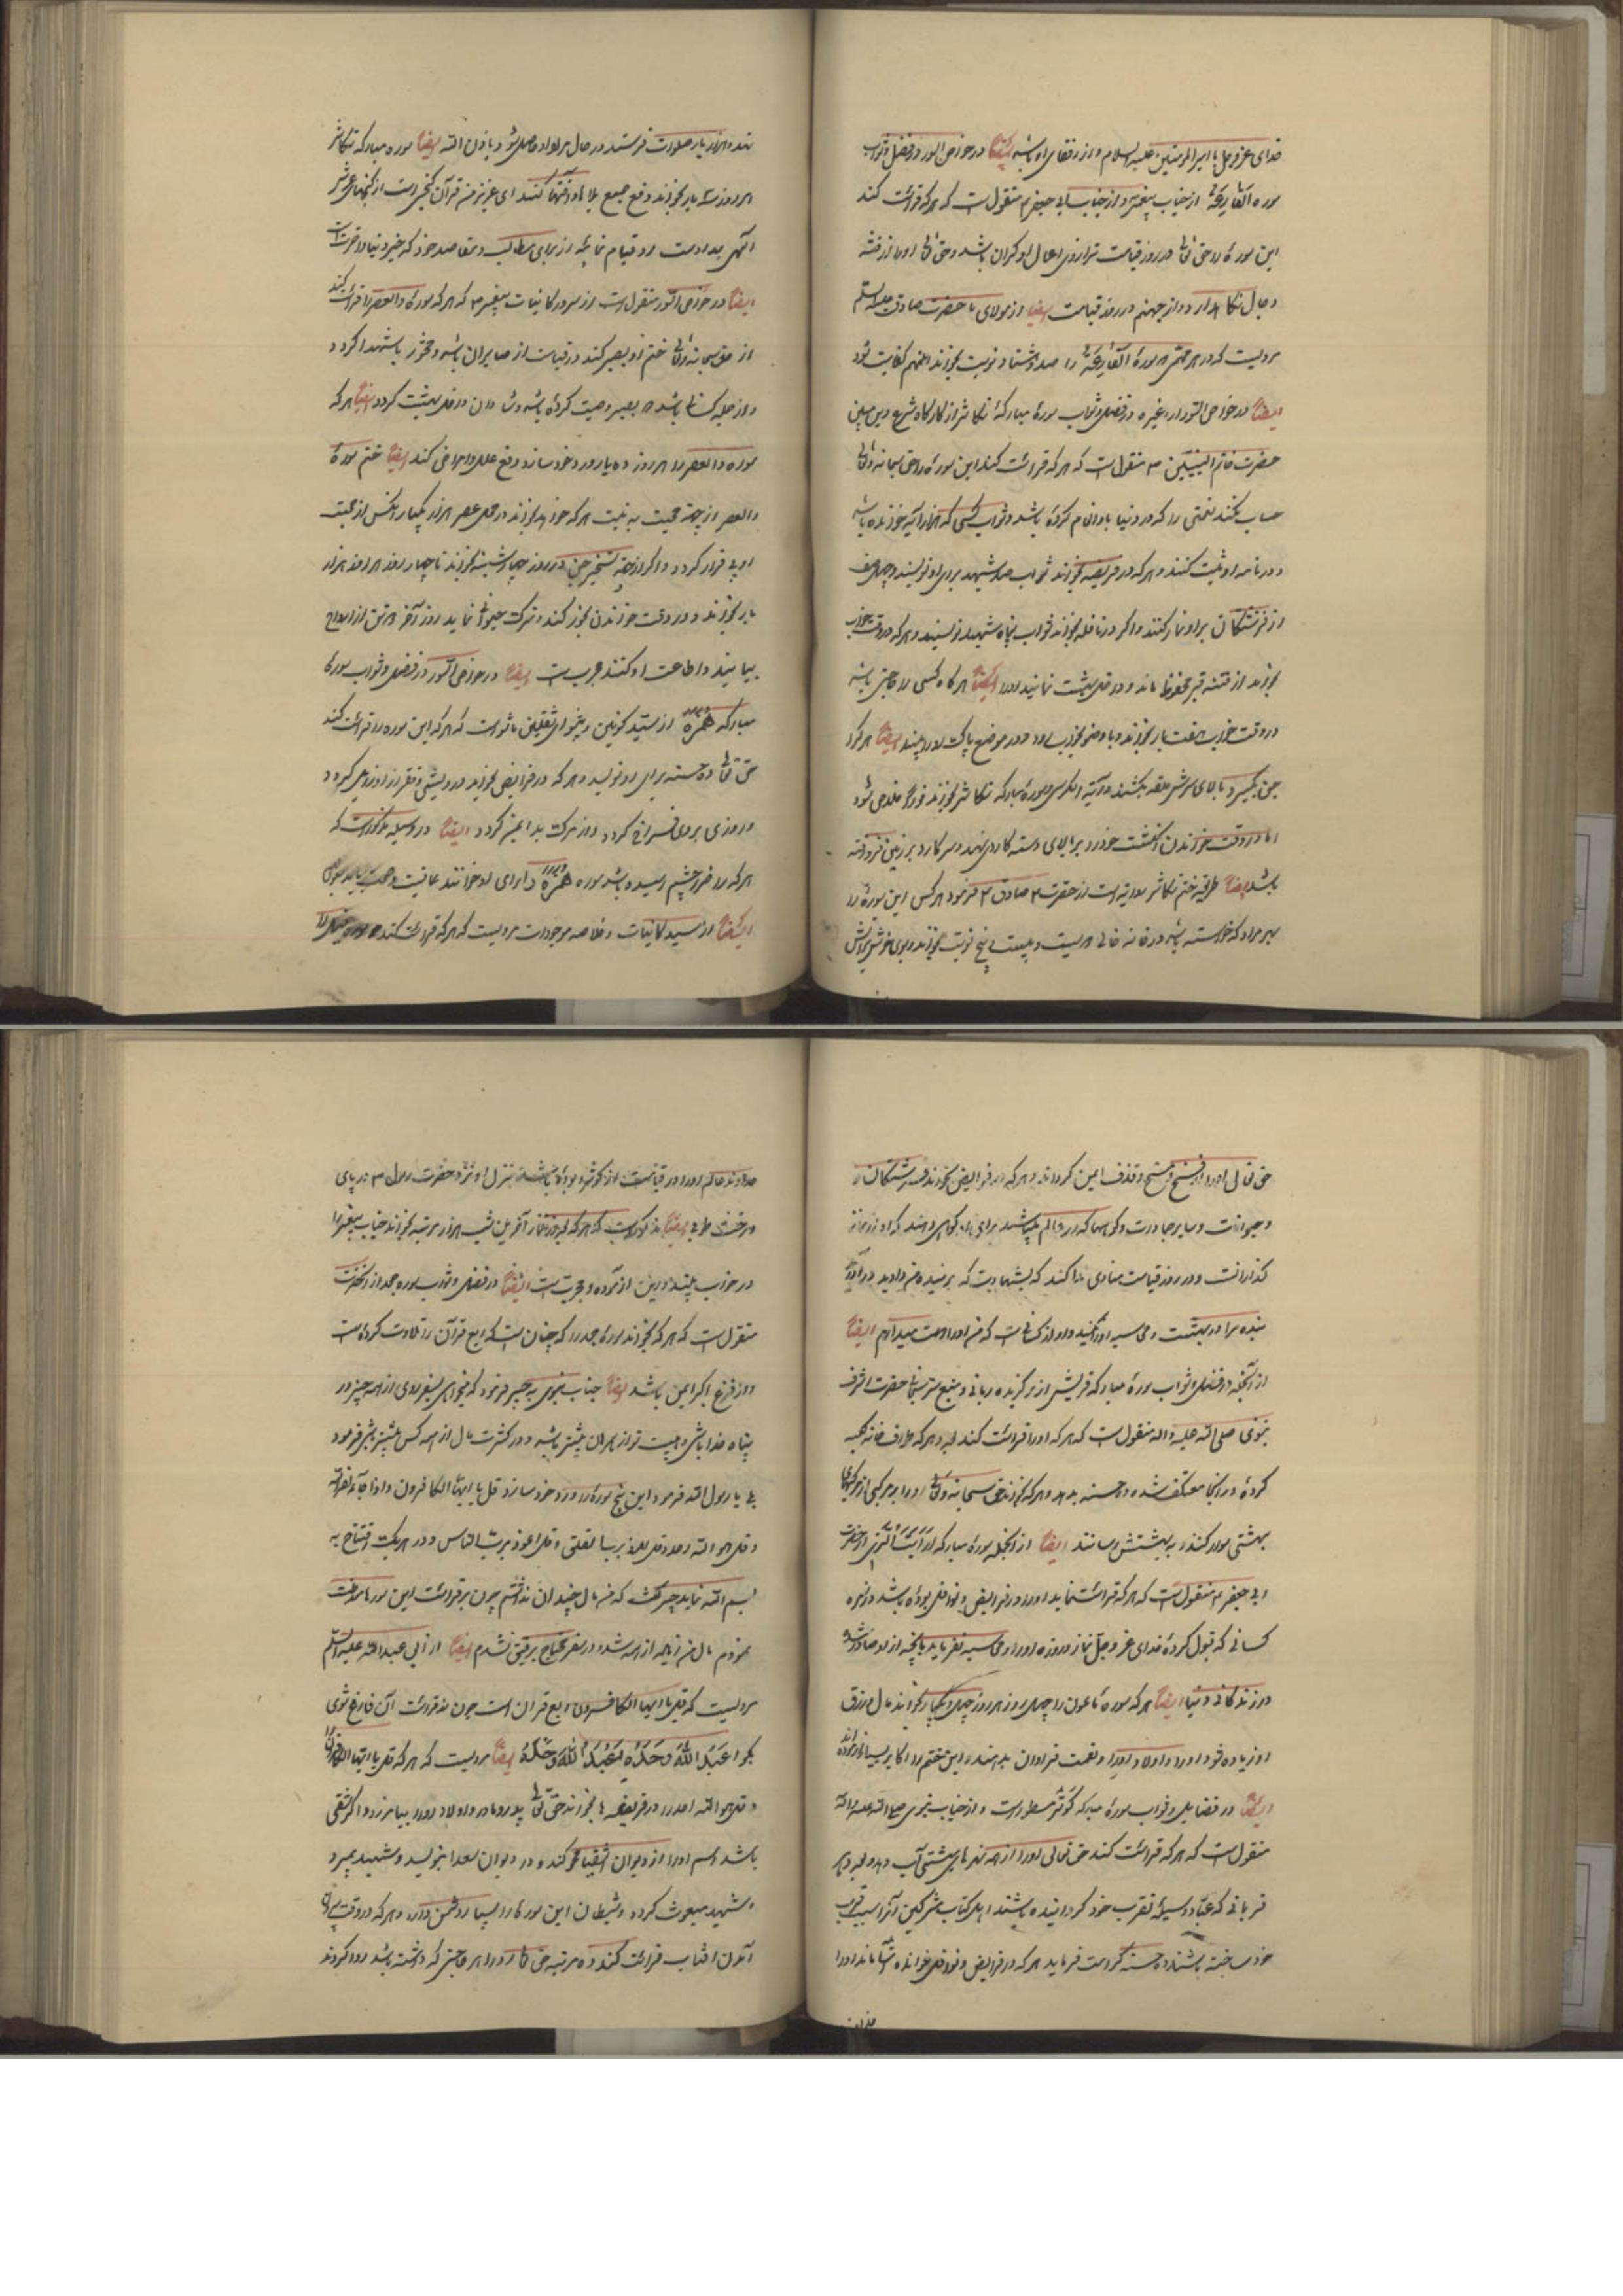 خدای عزوجل با امیرالمومنین علیه السلام و از رفقای او باشد ایضاً در خواص السور در فضل و ثواب
سوره القارعة از جناب پیغمبر و از جناب ابی جعفر منقول است که هر که قرائت کند
این سوره را حق تعالی در روز قیامت ترازوی اعمال او گران باشد و حق تعالی او را از فتنه
دجال نگاهدارد و از جهنم در روز قیامت ایضاً از مولای ما حضرت صادق علیه السلم
مرویست که در هر مهمی سورهٔ القارعة را صد و هشتاد نوبت بخوانند انمهم کفایت شود
ایضاً در خواص السور و غیره در فضل و ثواب سورهٔ مبارکهٔ تکاثر از کارگاه شرع و دین مبین
حضرت خاتم النبیین ص منقول است که هر که قرائت کند این سوره را حق سبحانه و تعالی
حساب نکند نعمتی را که در دنیا باو انعام کرده باشد و ثواب کسی که هزار آیه خوانده باشد
در نامه او ثبت کنند و هر که در فریضه بخواند ثواب صد شهید برای او نویسند و چهل صف
از فرشتگان بر او نماز کنند و اگر در نافله بخواند ثواب پنجاه شهید نویسند و هر که در وقت خواب
بخواند از فتنه قبر محفوظ ماند و داخل بهشت نمایند او را ایضاً هر گاه کسی را حاجتی باشد
در وقت خواب هفت بار بخواند و با وضو بخوابد و در موضع پاک در ایضاً هر کرا
جن بگیرد بالای سرش حلقه بکشند و آیة الکرسی و سورهٔ مبارکه تکاثر بخوانند فوراً خلاص شود
اما در وقت خواندن انگشت خود را بر بالای دسته کارد نهد و سر کارد بر زمین فرو رفته
باشد ایضاً طریقه ختم تکاثر روایة است از حضرت صادق ع فرمود هر کس این سوره را
بهر مراد که خواسته باشد در خانه خالی دویست و بیست و پنج نوبت بخواند و بوی خوش بر آتش
نهد و هزار بار صلوات فرستد در حال مراد او حاصل شود باذن الله ایضاً سوره مبارکه تکاثر
هر روز سه بار بخواند دفع جمیع بلاها و آفتها کند ای عزیز من قرآن گنجی است از گنجهای عرش
الهی مداومت و قیام نمائید از برای مطالب و مقاصد خود که خیر دنیا و آخرتست
ایضاً در خواص السور منقول است از سرور کاینات پیغمبر ص که هر که سورهٔ والعصر را قرائت کند
از حق سبحانه و تعالی ختم او بصبر کند و در قیامت از صابران باشد و محشور با شهدا گردد
و از جمله کسانی باشد که بصبر وصیت کرده باشد و شادان داخل بهشت گردد ایضاً هر که
سوره والعصر را هر روز ده بار ورد خود سازد دفع علل و امراض کند ایضاً ختم سورهٔ
والعصر از جهة محبت به نیت هر که خواهد بخواند در محل عصر هزار و یکبار آنکس از محبت
او بی قرار گردد و اگر از جهة تسخیر جن در روز چهارشنبه بخواند تا چهار روز هر روز هزار
بار بخواند و در وقت خواندن بخور کند و ترک حیوانی نماید روز آخر تن از ارواح
بیایند و اطاعت او کنند مجرب است ایضاً در خواص السور در فضل و ثواب سورهٔ
مبارکه همزه از سید کونین و پیشوای ثقلین ماثور است که هر که این سوره را قرائت کند
حق تعالی ده حسنه برای او نویسد و هر که در فرایض بخواند درویشی و فقر از او زایل گردد
و روزی بر وی فراخ گردد و از مرگ بد ایمن گردد ایضاً در وسیله مذکور است که
هر که را ضرر چشم رسیده باشد سوره همزه را برای او خوانند عافیت و صحت یابد
ایضاً از سید کاینات و خلاصه موجودات مرویست که هر که قرائت کند سوره فیل را
حق تعالی او را از فسخ و مسخ و قذف ایمن گرداند و هر که در فرایض بخواند فرشتگان
و حیوانات و سایر جمادات و کوهها که در عالم باشند برای او گواهی دهند که او از نماز
گذارانست و در روز قیامت منادی ندا کند که شهادت که بر بنده من دادید در آورید
بنده مرا در بهشت و محاسبه او را نکنید و او از کسانی است که من او را دوست میدارم ایضاً
از آنجمله در فضل و ثواب سورهٔ مبارکه قریش از برگزیده ربانی و منبع حضرت اشرف
نبوی صلی الله علیه و اله منقول است که هر که او را قرائت کند و هر که طواف خانه کعبه
کرده و در آنجا معتکف شده ده حسنه بدهد و هر که بخواند حق سبحانه و تعالی او را بر مرکبی از مرکبهای
بهشتی سوار کند و به بهشتش رسانند ایضاً از آنجمله سورهٔ مبارکه ارأیت الذی از حضرت
ابی جعفر ع منقول است که هر که قرائت نماید او را در فرایض و نوافل بوده باشد در زمره
کسانی که قبول کردهٔ خدای عزوجل نماز و روزه او را و محاسبه نفرماید بآنچه از او صادر شده
در زندگانی دنیا ایضاً هر که سورهٔ ماعون را چهل روز هر روز چهل و یکبار بخواند مال و رزق
او زیاده شود او را و اولاد او را و نعمت فراوان بدهند و این ختم را اکابر بسیار آزموده‌اند
ایضاً در فضایل و ثواب سورهٔ مبارکه کوثر مسطور است و از جناب نبوی صلی الله علیه واله
منقول است که هر که قرائت کند حق تعالی او را از همه نهرهای بهشتی آب دهد و بعدد هر
قربانی که عباد وسیلهٔ تقرب خود گردانیده باشند اهل کتاب و مشرکین آنرا سبب قرب
خود ساخته باشند ده حسنه کرامت فرماید هر که در فرایض و نوافل خوانده او را
خداوند عالم او را در قیامت از کوثر و بوده باشد منزل او نزد حضرت رسول ص در پای
درخت طوبی ایضاً مذکور است که هر که بعد از نماز آخرین شب هزار مرتبه بخواند جناب پیغمبر را
در خواب بیند و این آزموده و مجرب است ایضاً در فضل و ثواب سوره جحد از آنحضرت
منقول است که هر که بخواند سورهٔ جحد را که چنان است که ربع قرآن را تلاوت کرده است
و از فزع اکبر ایمن باشد ایضاً جناب نبوی به جبیر فرمود که میخواهی بسفر روی از همه چیز در
پناه خدا باشی و هیبت تو از همرهان بیشتر باشد و در کثرت مال از همه کس بیشتر باشی فرمود
بلی یا رسول الله فرمود این پنج سوره را ورد خود سازد قل یا ایها الکافرون و اذا جاء نصر الله
و قل هو الله احد و قل اعوذ برب الفلق و قل اعوذ برب الناس و در هر یک افتتاح به
بسم الله نماید جبیر گفت که من مال چندان نداشتم چون بر قرائت این سورها مواظبت
نمودم مال من زیاده از همه شد و در سفر محتاج برفیق نشدم ایضاً از ابی عبدالله علیه السلم
مرویست که قل یا ایها الکافرون ربع قران است چون از قرائت آن فارغ شوی
بگو اعبد الله وحده اعبد الله وحده ایضاً مرویست که هر که قل یا ایها الکافرون
و قل هو الله احد را در فریضه ها بخواند حق تعالی پدر و مادر و اولاد او را بیامرزد و اگر شقی
باشد اسم او را از دیوان اشقیا محو کند و در دیوان سعدا بنویسد و شهید بمیرد
و شهید مبعوث گردد و شیطان این سوره را بسیار دشمن دارد و هر که در وقت بر
آمدن افتاب قرائت کند ده مرتبه حق تعالی او را هر حاجتی که داشته باشد روا گرداند